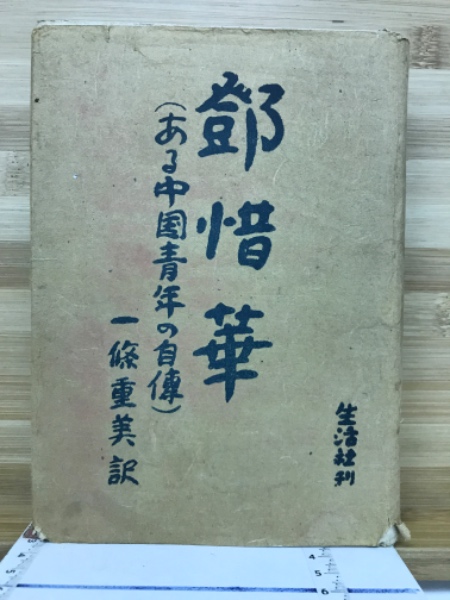 鄧惜華
(ある中国青年の自傳)
一條重美訳
生活社刊
3
4
5
6